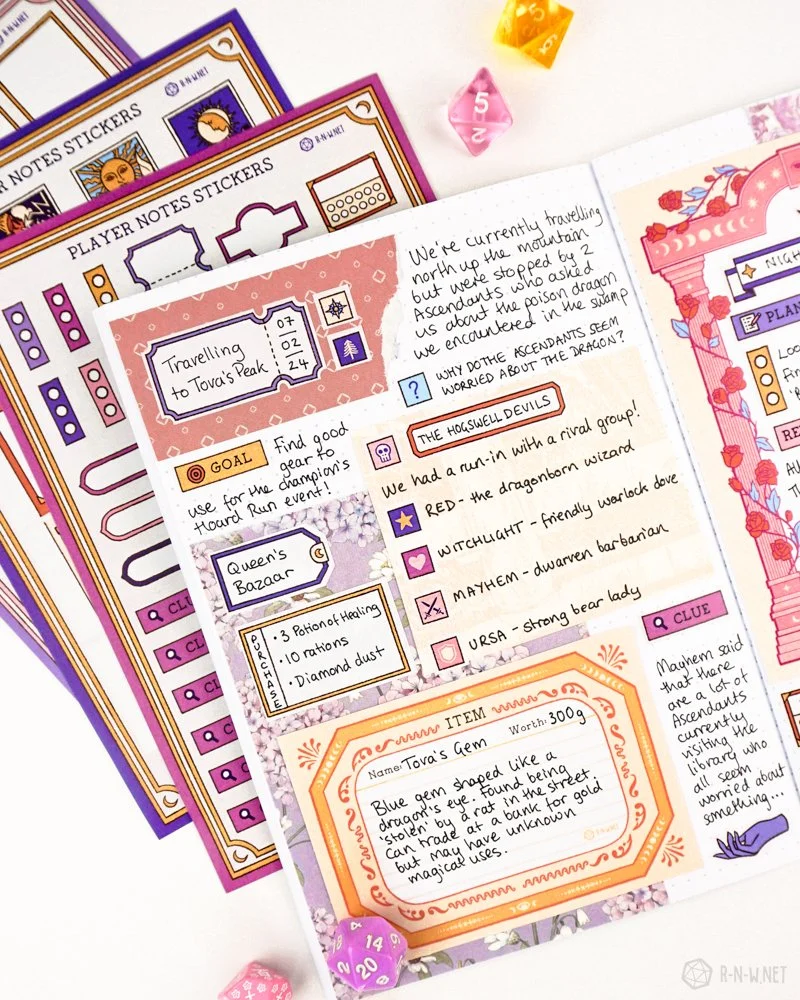 R-N-W.NET
R NOTES STICKERS
R-N-W.NET
PLAYER NOTES STICKERS
R-N-W.NET
5
6
5
2
Travelling
to Tova's Peak
07
02
24
We're currently travelling
north up the mountain
but were stopped by 2
Ascendants who asked
us about the poison dragon
we encountered in the swamp
?
WHY DO THE ASCENDANTS SEEM
WORRIED ABOUT THE DRAGON?
GOAL
Find good
gear to
use for the champion's
Hoard Run event!
THE HOGSWELL DEVILS
We had a run-in with a rival group!
RED - the dragonborn wizard
WITCHLIGHT - friendly warlock dove
MAYHEM - dwarven barbarian
URSA - strong bear lady
Queen's
Bazaar
PURCHASE
• 3 Potion of Healing
• 10 rations
• Diamond dust
CLUE
Mayhem said
that there
are a lot of
Ascendants
currently
visiting the
library who
all seem
worried about
something...
ITEM
Name: Tova's Gem
Worth: 300g
Blue gem shaped like a
dragon's eye. Found being
'stolen' by a rat in the street.
Can trade at a bank for gold
but may have unknown
magical uses.
R-N-W.NET
CLU
CL
CL
C
C
NIGH
PLAN
Loo
Fin
RE
14
20
R-N-W.NET